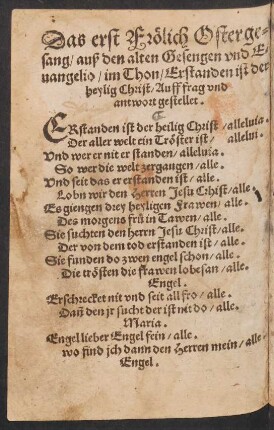 Das erst Frölich Osterge-
sang/ auß den alten Gesengen vnd E-
uangelio/ im Thon/ Erstanden ist der
heylig Christ/ Auff frag vnd
antwort gestellet.
ERstanden ist der heilig Christ/ alleluia.
Der aller welt ein Tröster ist/ allelui.
Vnd wer er nit er standen/ alleluia.
So wer die welt zergangen/ alle.
Vnd seit das er erstanden ist/ alle.
Lobn wir den Herren Jesu Christ/ alle.
Es giengen drey heyligen Frawen/ alle.
Des morgens frü in Tawen/ alle.
Sie suchten den herrn Jesu Christ/ alle.
Der von dem tod erstanden ist/ alle.
Sie funden do zwen engel schon/ alle.
Die trösten die frawen lobesan/ alle.
Engel.
Erschrecket nit vnd seit all fro/ alle.
Dañ den jr sucht der ist nit do/ alle.
Maria.
Engel lieber Engel fein/ alle.
wo find jch dann den Herren mein/ alle.
Engel.